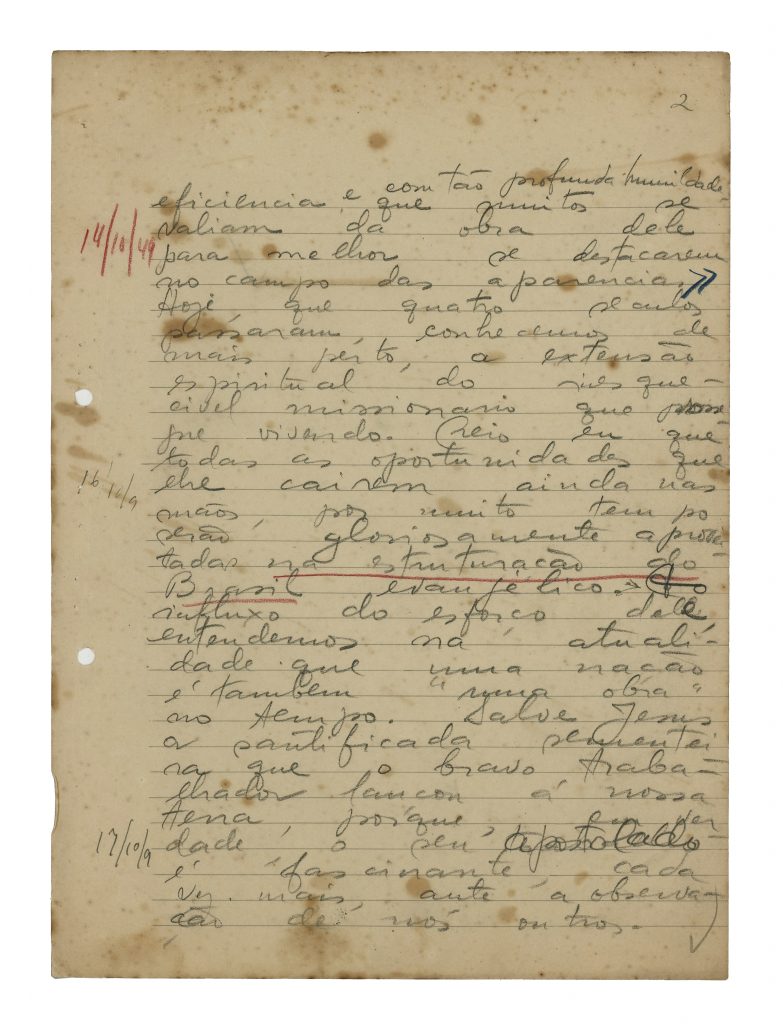 2
com tão profunda humildade
eficiencia, e que muitos se
14/10/49
valiam da obra dele
para melhor se destacarem
no campo das aparencia. »
Hoje que quatro seculos
passaram, conhecemos de
mais perto, a extensão
espiritual do inesque-
civel missionario que prosse
gue vivendo. Creio eu que
todas as oportunidades que
lhe cairem ainda nas
16/10/9
mãos, por muito tempo
serão gloriosamente aprovei
tadas na estruturação do
Brasil evangélico. Ao
influxo do esforço dele
entendemos na atuali-
dade que uma nação
é tambem "uma obra"
no tempo. Salve Jesus
a santificada sementei
ra que o bravo traba-
lhador lançou á nossa
terra, porque, em ver
17/10/9
dade, o seu apostolado
é fascinante, cada
vez mais, ante a observa-
ção de nós outros.